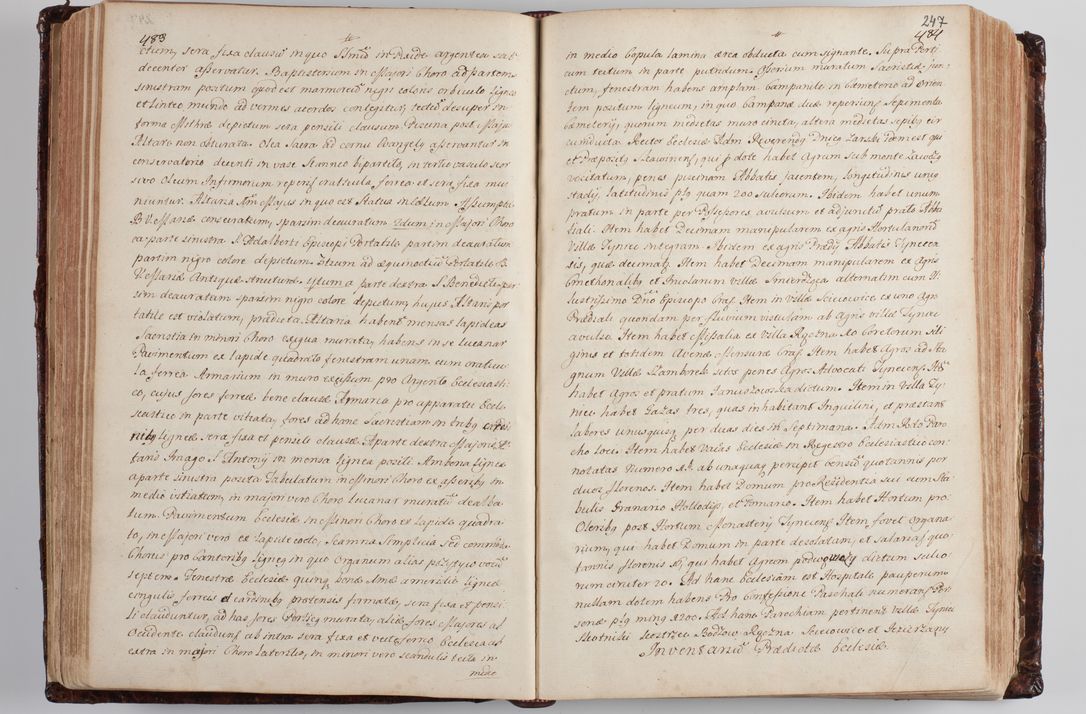 483
ctum, sera fixa clausũ in quo SSmũ in Pixide argentea sat
decenter asservatur. Baptisterium in Majori Choro ad partem
sinistram positum quod est marmoreũ nigri coloris orbiculo ligneo
et linteo mundo ad vermes arcendos contegitur, tectũ desuper in
forma Mithræ depictum sera pensili clausum. Piscina post Majus
Altare non obturata. Olea Sacra ad cornu Evangely asservantur in
conservatorio decenti in vase stanneo bipartito, in tertio vasculo seor
sivo Oleum Infirmorum reperiũ craticula ferrea et sera fixa mu
niuntur. Altaria Majus in quo est Statua in Assumpti
B. V. Mariæ consecratum, sparsim deauratum 2dum in Majori Choro
ex parte sinistra S. Adalberti Episcopi Portatile partim deauratum
partim nigro colore depictum. 3tium ad æquinoctiũ Portatile B.
V. Mariæ Antiquæ structuræ. 4tum a parte dextra S. Benedicti spar
sim deauratum sparsim nigro colore depictum, hujus Altaris por
tatile est violatum, prædicta Altaria habent mensas lapideas
Sacristia in minori Choro exigua murata, habens in se lacunar
Pavimentum ex lapide quadrato fenestram unam cum craticu
la ferrea Armarium in muro excissum pro Argento Ecclesiasti
co, cujus fores ferreæ bene clausæ Armaria pro apparatu Eccle
siastico in parte vitiata, fores ad hanc Sacristiam in
ligneæ sera fixa et pensili clausæ. A parte dextra Majoris Al
taris Imago S. Antonij in mensa lignea positi. Ambona lignea
a parte sinistra posita Tabulatum in Minori Choro ex asseribus in
medio vitiatum, in majori vero Choro lacunar muratũ dealba
tum. Pavimentum Ecclesiæ in Minori Choro ex lapide quadra
to, in Majori vero ex lapide cocto, scamna simplicia sed commoda
Chorus pro Cantoribus ligneus in quo Organum alias pozytyw vocũ
septem. Fenestræ Ecclesiæ quinq bonæ
congulis ferreis et cardinibus prætensis firmatæ, sera fixa et pensi
li clauduntur, ad has fores Porticus murata, aliæ fores Majores ab
Occidente claudunt ab intra sera fixa et vecte ferreo Ecclesia ab
extra in majori Choro lateritio, in minori vero scandulis tecta in
medio
247
484
in medio Copula lamina ærea obducta cum signante. Supra Porti
cum tectum in parte putridum. Ossorium muratum Sacristiæ jun
ctum, fenestram habens amplam. Campanile in Cæmeterio ad orien
tem positum ligneum, in quo Campanæ duæ reperiunt. Sepimentũ
Cæmeterij, quorum medietas muro cincta, altera medietas sepibus cir
cumducta. Rector Ecclesiæ Adm Reverendus Dnus Larski idem est qui
et Præpositus Slawinens, qui p dote habet Agrum sub monte
vocitatum, penes piscinam Abbatis jacentem, longitudinis unius
stadij, latitudinis plus quam 200 sulcorum. Ibidem habet unum
pratum in parte per Possessores avulsum et adjunctũ prato Abba
tiali. Item habet Decimam manipularem ex agris Hortulanorũ
Villæ Tyniec integram. Ibidem ex agris Prædij Abbatis Tynecen
sis, quæ decimat. Item habet Decimam manipularem ex Agris
Cmethonalibus et Incolarum Villæ Smierdząca alternatim cum Il
lustrissimo Dno Episcopo Crac. Item in Villa Sciieiowice ex uno Agro
Prædiali quondam per fluvium Vistulam ab Agris villæ Tyniec
avulso. Item habet Missalia ex Villa Ryczna No Coretorum sili
ginis et totidem Avenæ Mensuræ Crac. Item habet Agros ad Sta
gnum Villæ Samborek sitos penes Agros Advocati Tynecens. Ite
habet Agros et pratum Januszowszczadictum. Item in Villa Ty
niec habet Cazas tres, quas inhabitant Inquilini, et præstant
labores unusquisq per duas dies in Septimana. Adm Rdo Paro
cho loci. Item habet Vacas Ecclesiæ in Regestro Ecclesiastico con
notatas Numero 21. ab unaquaq percipit censũ quotannis por
duos florenos. Item habet Domum pro Residentia sui cum Sta
bulis Granario Hollodijs, et Pomario. Item habet Hortum pro
Oleribus post Hortum Monasterij Tynecens. Item fovet Organa
rium, qui habet Domum in parte desolatam, et salariatũ quo
tannis florenis 8, qui habet Agrum podworny dictum sulco
rum circiter 20. Ad hanc Ecclesiam est Hospitale pauperum
nullam dotem habens. Pro Confessione Paschali numerant Per
sonæ plus minus 1200. Ad hanc Parochiam pertinent Villæ Tyniec
Skotniki Kostrze Bodzow Ryczna Sciieiowice et Jezierzany
Inventariũ Prædictæ Ecclesiæ